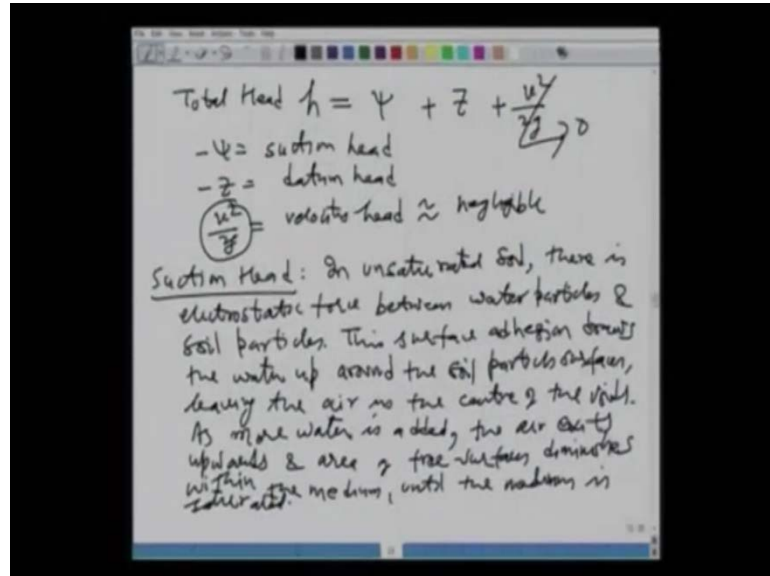 Total Head h = Ψ + Z + u²/2g → 0
- Ψ = suction head
- Z = datum head
u²/2g = velocity head ≈ negligible
Suction Head : In unsaturated soil, there is
electrostatic force between water particles &
soil particles. This surface adhesion draws
the water up around the soil particle surfaces,
leaving the air in the centre of the voids.
As more water is added, the air exits
upwards & area of free surfaces diminishes
within the medium, until the medium is
saturated.